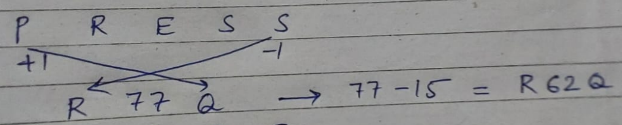 P R E S S
+1 -1
R 77 Q → 77 - 15 = R 62 Q